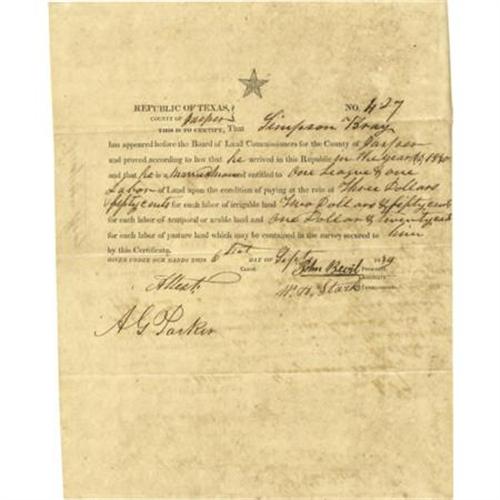 REPUBLIC OF TEXAS, }
COUNTY OF Jasper NO. 427
THIS IS TO CERTIFY, That Simpson Bray
has appeared before the Board of Land Commissioners for the County of Jasper
and proved according to law that he arrived in this Republic in the year AD 1830
and that he is a married man and entitled to One League & one
Labor of Land upon the condition of paying at the rate of Three Dollars
fifty cents for each labor of irrigable land Two Dollars & fifty cents
for each labor of temporal or arable land and One Dollar & twenty cents
for each labor of pasture land which may be contained in the survey secured to him
by this Certificate.
GIVEN UNDER OUR HANDS THIS DAY OF Sept 1839
John Bevil PRESIDENT
Attest. Wm. H. Stark
A G Parker